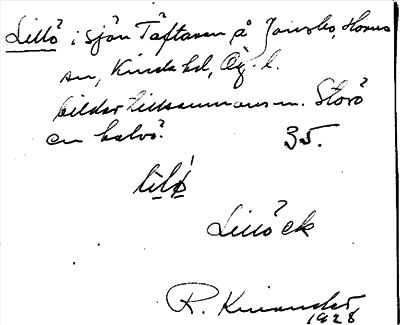 Lillö i sjön Täftaren å Jonsbo, Horns
sn, Kinda hd, Ög. l.
bildar tillsammans m. Storö
en halvö.
35.
lilö
Lillöck
R. Kinander
1928